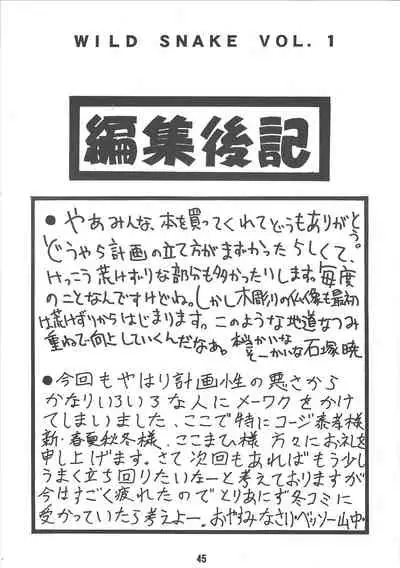 WILD SNAKE VOL. 1
編集後記
●やあみんな、本を買ってくれてどうもありがとう。
どうやら計画の立て方がまずかったらしくて、
けっこう荒けずりな部分も多かったりします。毎度
のことなんですけどね。しかし木彫りの仏像も最初
は荒けずりからはじまります。このような地道なつみ
重ねで向上していくんだなあ。
そーかいな石塚暁
●今回もやはり計画性の悪さから
かなりいろいろな人にメーワクをかけ
てしまいました、ここで特にコージ泰孝様
新・春夏秋冬様、ここまひ様方々にお礼を
申し上げます。さて次回もあればもう少し
うまく立ち回りたいなーと考えておりますが
今はすごく疲れたのでとりあにず冬コミに
受かっていたら考えよー。おやすみなさい・ベッソー山中・
45